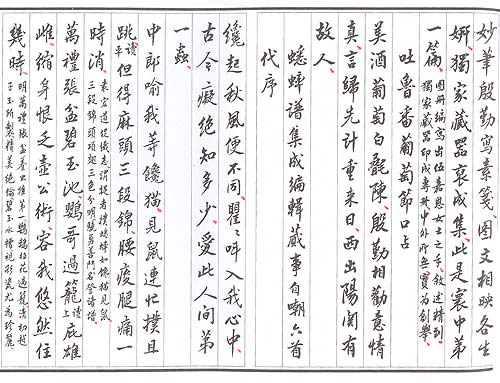 妙筆殷勤寫素箋圖文相映各生
妍獨家藏器裒成集此是寰中第
一篇圖冊編寫出位嘉恩女士之手敘述精到
獨家藏器印成專冊中外所無實為創舉
吐魯番葡萄節口占
美酒葡萄白氍陳殷勤相勸意情
真言歸先計重來日西出陽關有
故人
蟋蟀譜集成編輯蕆事自嘲六首
代序
纔起秋風便不同瞿瞿呌入我心中
古今癡絕知多少愛此人間第
一蟲
中郎喻我等饞貓見鼠連忙撲且
跳平讀但得麻頭三段錦腰痠腿痛一
時消袁宏道促織志謂捉者撲蟋蟀如饞貓見鼠
三段錦頭項翅三色分明驍勇善鬥名登諸譜
萬禮張盆碧玉池鸚哥過籠上讀庇雄
雌縮身恨乏壺公術容我悠然住
幾時明萬禮張盆養虫推第一鸚鵡拉花過籠清初趙
子玉所製精美絕倫碧玉水槽視彩瓷尤為珍麗